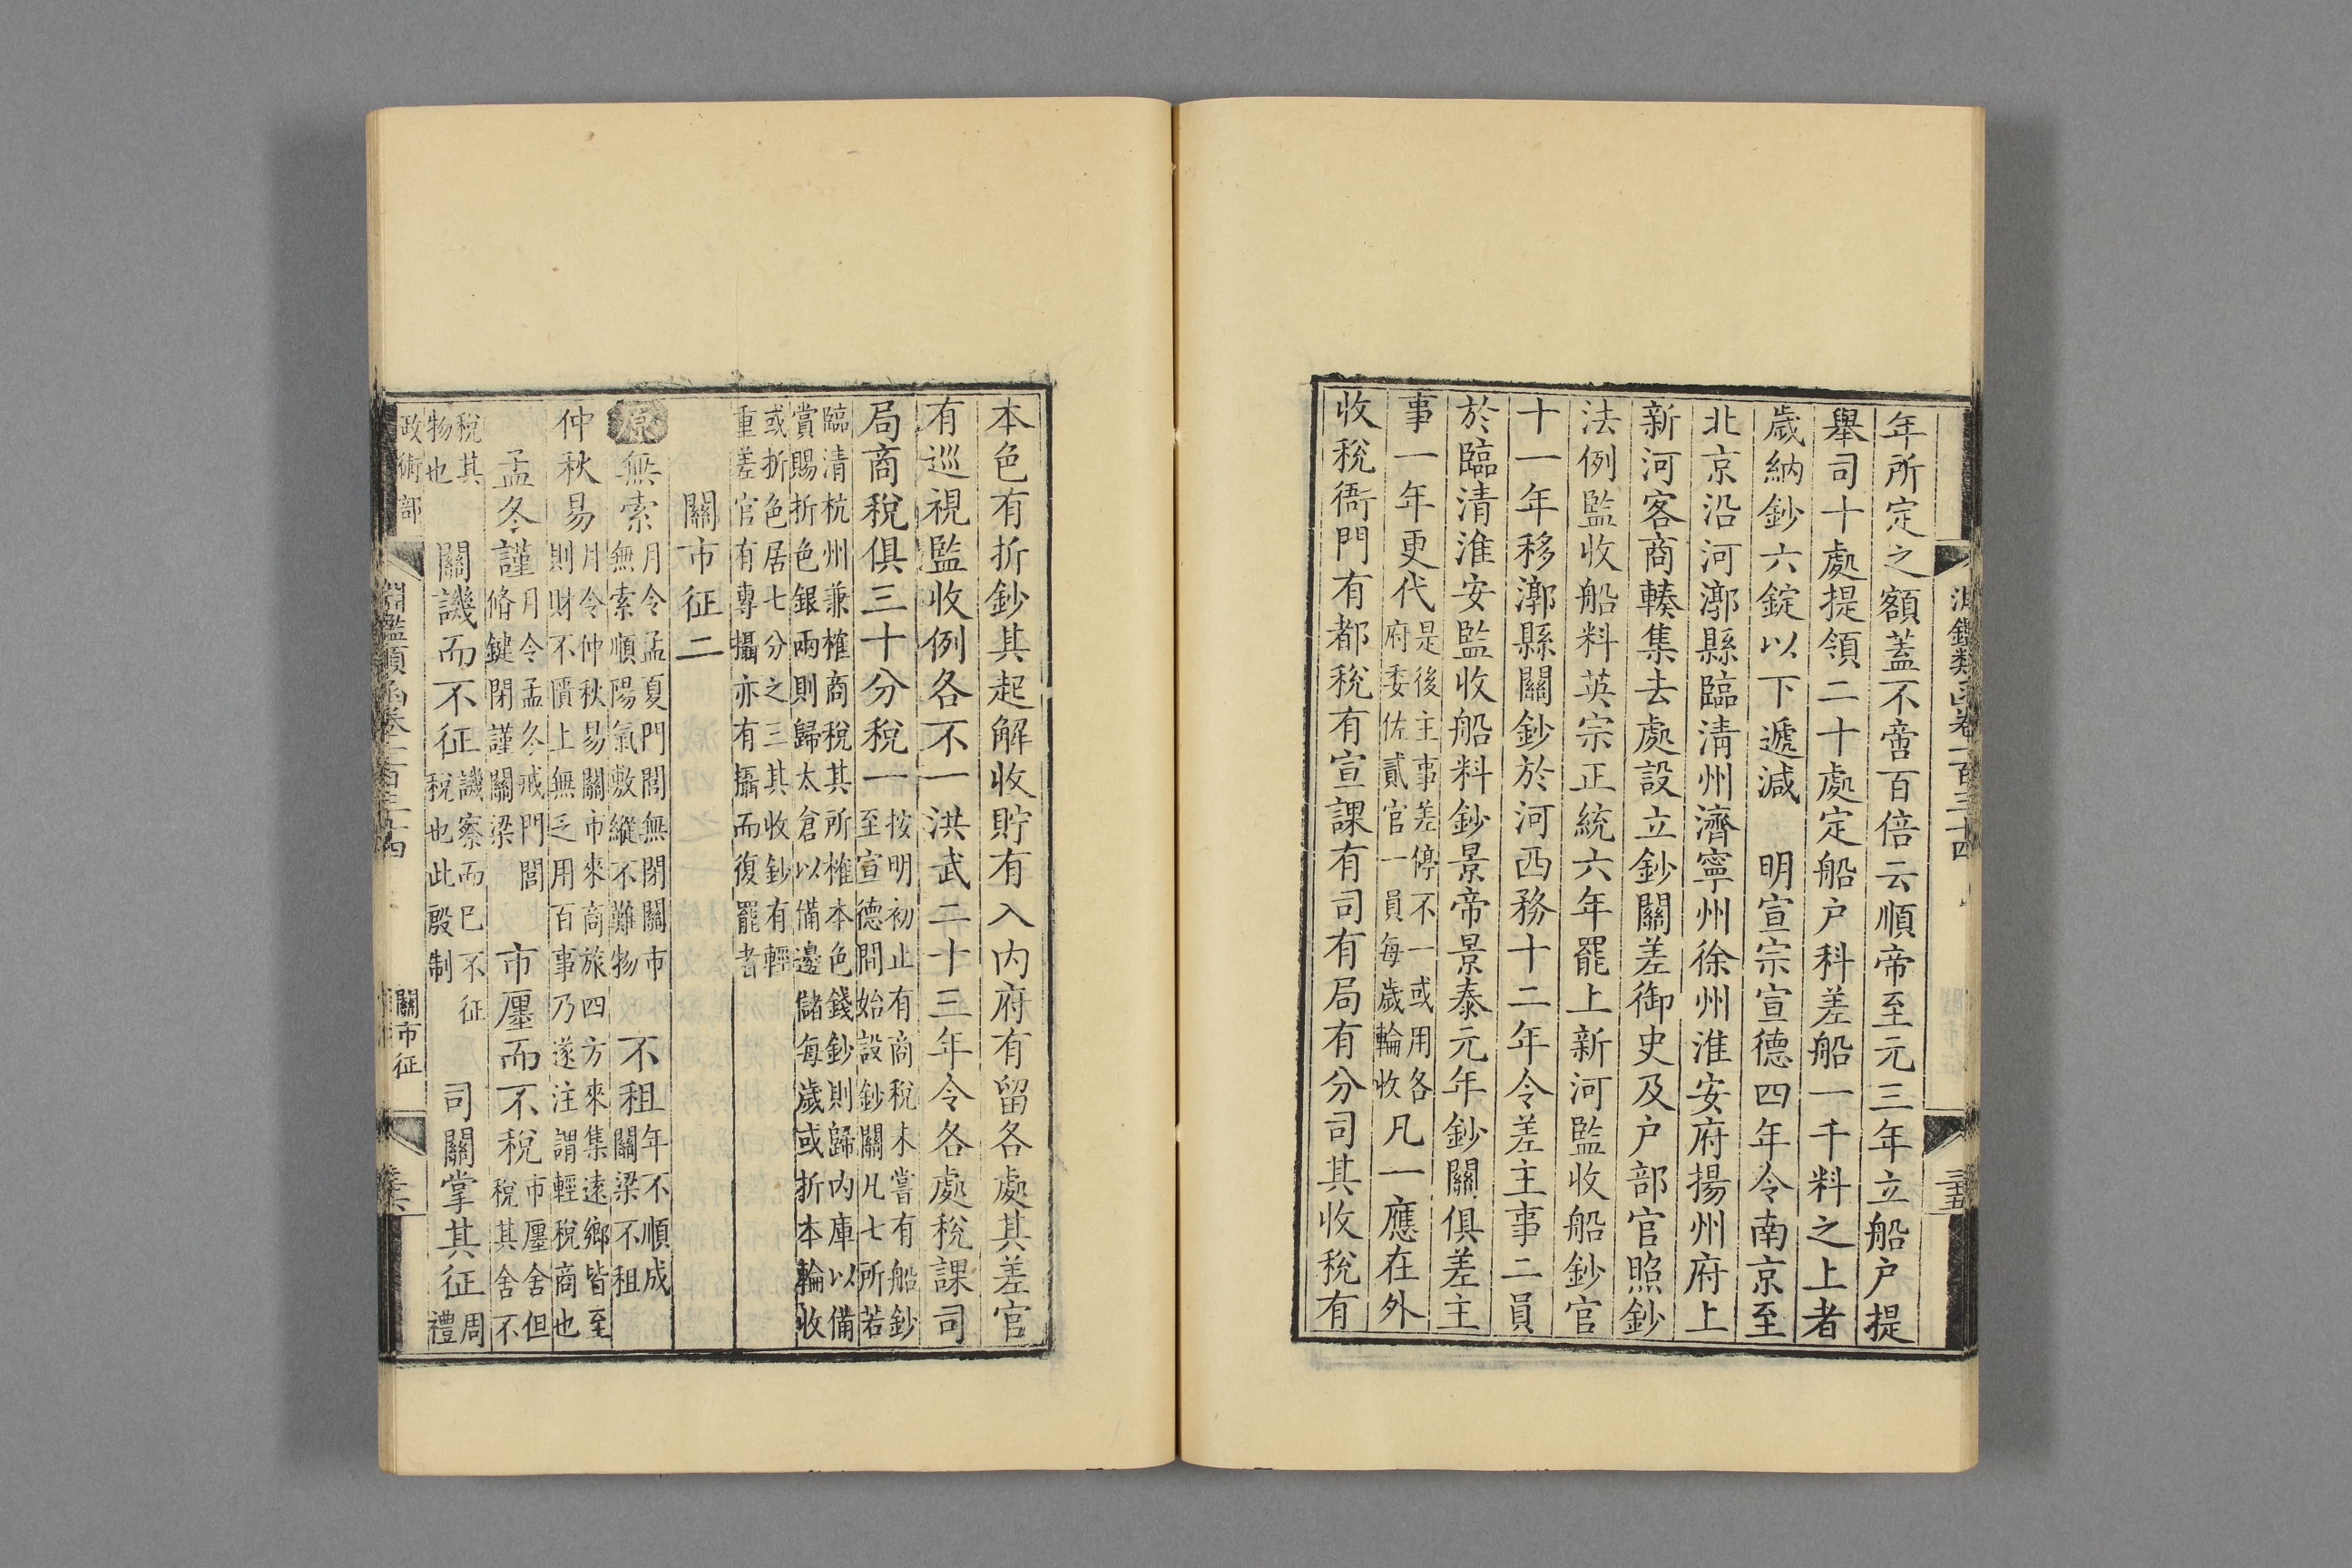 年所定之額蓋不啻百倍云順帝至元三年立船户提
舉司十處提領二十處定船户科差船一千料之上者
歲納鈔六錠以下遞減　明宣宗宣德四年令南京至
北京沿河漷縣臨清州濟寧州徐州淮安府揚州府上
新河客商輳集去處設立鈔關差御史及户部官照鈔
法例監收船料英宗正統六年罷上新河監收船鈔官
十一年移漷縣關鈔於河西務十二年令差主事二員
於臨清淮安監收船料鈔景帝景泰元年鈔關俱差主
事一年更代是後主事差停不一或用各府委佐貳官一員每歲輪收凡一應在外
收稅衙門有都稅有宣課有司有局有分司其收稅有
淵鑑類函卷一百三十四
三十五
本色有折鈔其起解收貯有入内府有留各處其差官
有巡視監收例各不一洪武二十三年令各處稅課司
局商稅俱三十分稅一按明初止有商稅未嘗有船鈔至宣德間始設鈔關凡七所若
臨清杭州兼榷商稅其所榷本色錢鈔則歸内庫以備
賞賜折色銀兩則歸太倉以備邊儲每歲或折本輪收
或折色居七分之三其收鈔有輕
重差官有專攝亦有攝而復罷者
關市征二
原無索月令孟夏門閭無閉關市無索順陽氣敷縱不難物　不租年不順成關梁不租
仲秋易月令仲秋易關市來商旅四方來集遠鄉皆至則財不匱上無乏用百事乃遂注謂輕稅商也
孟冬謹月令孟冬戒門閭脩鍵閉謹關梁　市廛而不稅市廛舍但稅其舍不
稅其物也　關譏而不征譏察而已不征稅也此殷制　司關掌其征周禮
政術部
淵鑑類函卷一百三十四
關市征